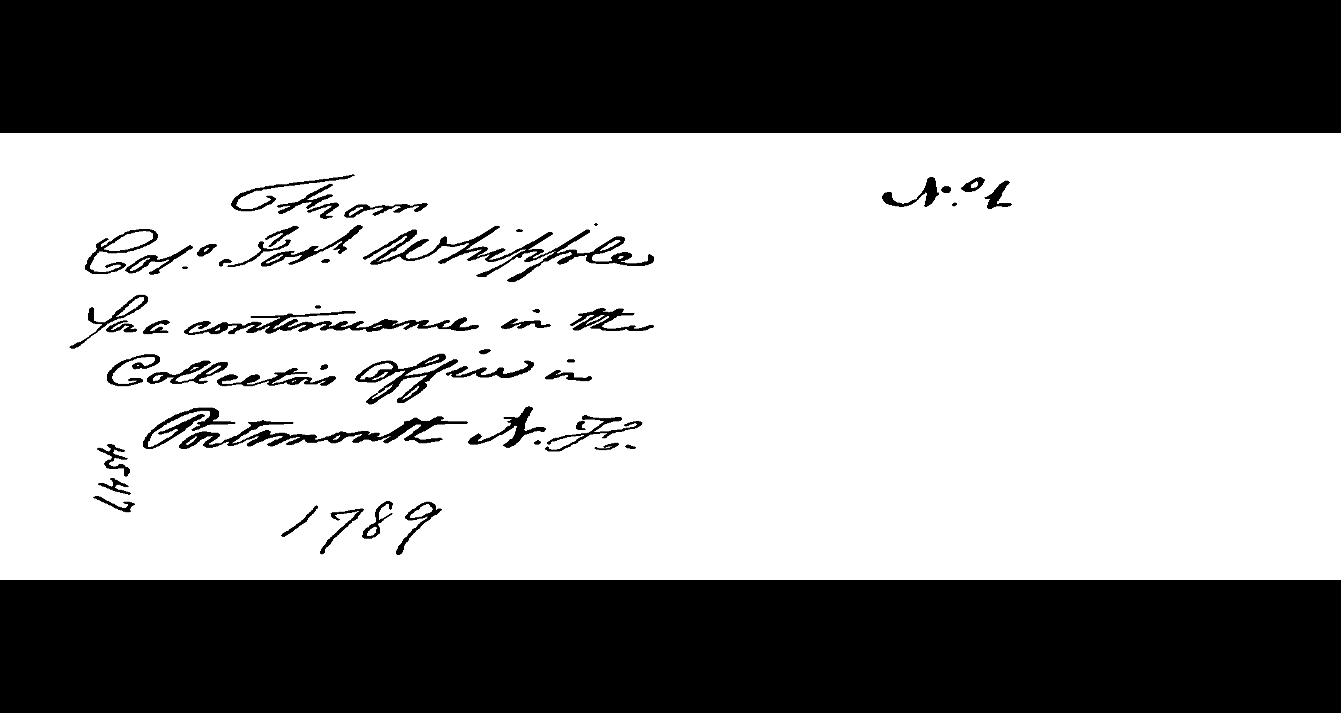 From
Col.º Jos.h Whipple
for a continuance in the
Collectors Office in
Portsmouth N. H.
4547
1789
N.º 1